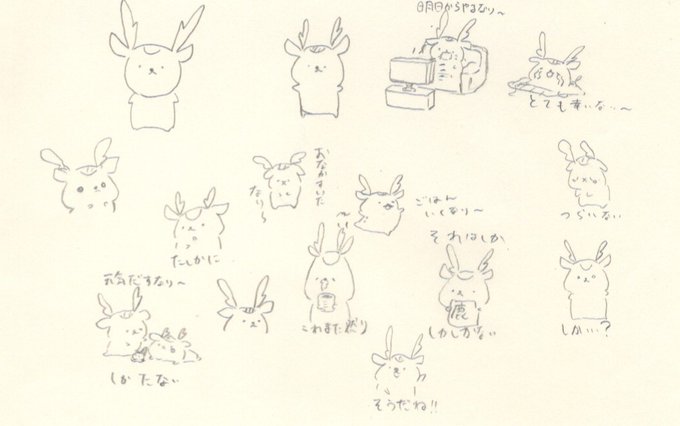 明日からやるなり〜
とても辛いなり〜
おなかすいた
なりら
ごはん
いくなり〜
つらいなり
たしかに
それはしか
鹿
しかしかない
元気だすなり〜
しかたない
これまた然り
しかい…?
そうだね!!